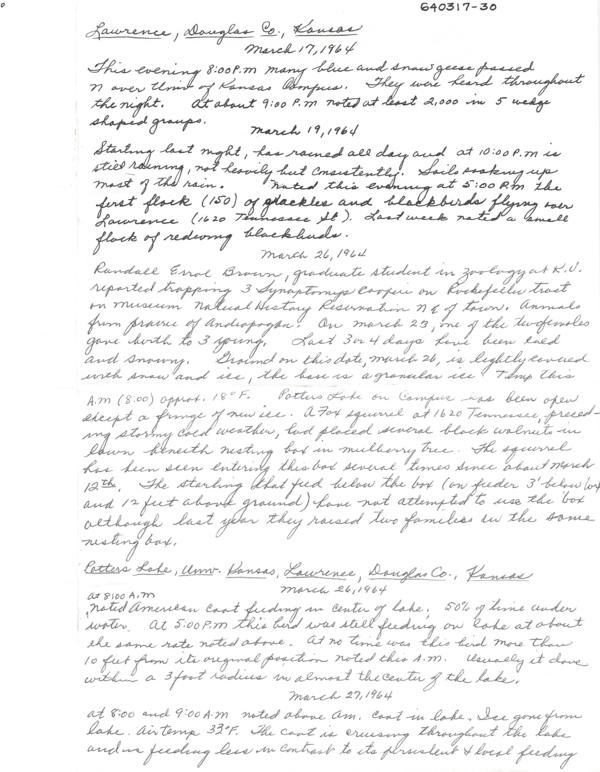 640317-30
Lawrence, Douglas Co., Kansas
March 17, 1964
This evening 8:00 P.M many blue and snow geese passed
N over Univ of Kansas Campus. They were heard throughout
the night. At about 9:00 P.M noted at least 2,000 in 5 wedge
shaped groups.
March 19, 1964
Starting last night, has rained all day and at 10:00 P.M is
still raining, not heavily but consistently. Soil soaking up
most of the rain. Noted this evening at 5:00 P.M the
first flock (150) of grackles and blackbirds flying over
Lawrence (1620 Tennessee St). Last week noted a small
flock of redwing blackbirds.
March 26, 1964
Randall Errol Brown, graduate student in Zoology at K.U.
reported trapping 3 Synaptomys cooperi on Rockefeller tract
on Museum Natural History Reservation NE of town. Animals
from prairie of Andropogon. On March 23, one of the two females
gave birth to 3 young. Last 3 or 4 days have been cold
and snowy. Ground on this date, March 26, is lightly covered
with snow and ice, the base is a granular ice. Temp this
A.M (8:00) approx. 18° F. Potters Lake on Campus has been open
except a fringe of new ice. A Fox squirrel at 1620 Tennessee, preced-
ing stormy cold weather, had placed several black walnuts in
lawn beneath nesting box in mulberry tree. The squirrel
has been seen entering this box several times since about March
12th. The starling that fed below the box (on feeder 3' below box
and 12 feet above ground) have not attempted to use the box
although last year they raised two families in the same
nesting box.
Potters Lake, Univ. Kansas, Lawrence, Douglas Co., Kansas
March 26, 1964
at 8:00 A.M
noted American coot feeding in center of lake. 50% of time under
water. At 5:00 P.M this bird was still feeding on lake at about
the same rate noted above. At no time was this bird more than
10 feet from its original position noted this A.M. Usually it dove
within a 3 foot radius in almost the center of the lake.
March 27, 1964
at 8:00 and 9:00 A.M noted above Am. coot in lake. Ice gone from
lake. Air temp 33° F. The coot is cruising throughout the lake
and is feeding less in contrast to its persistent & local feeding